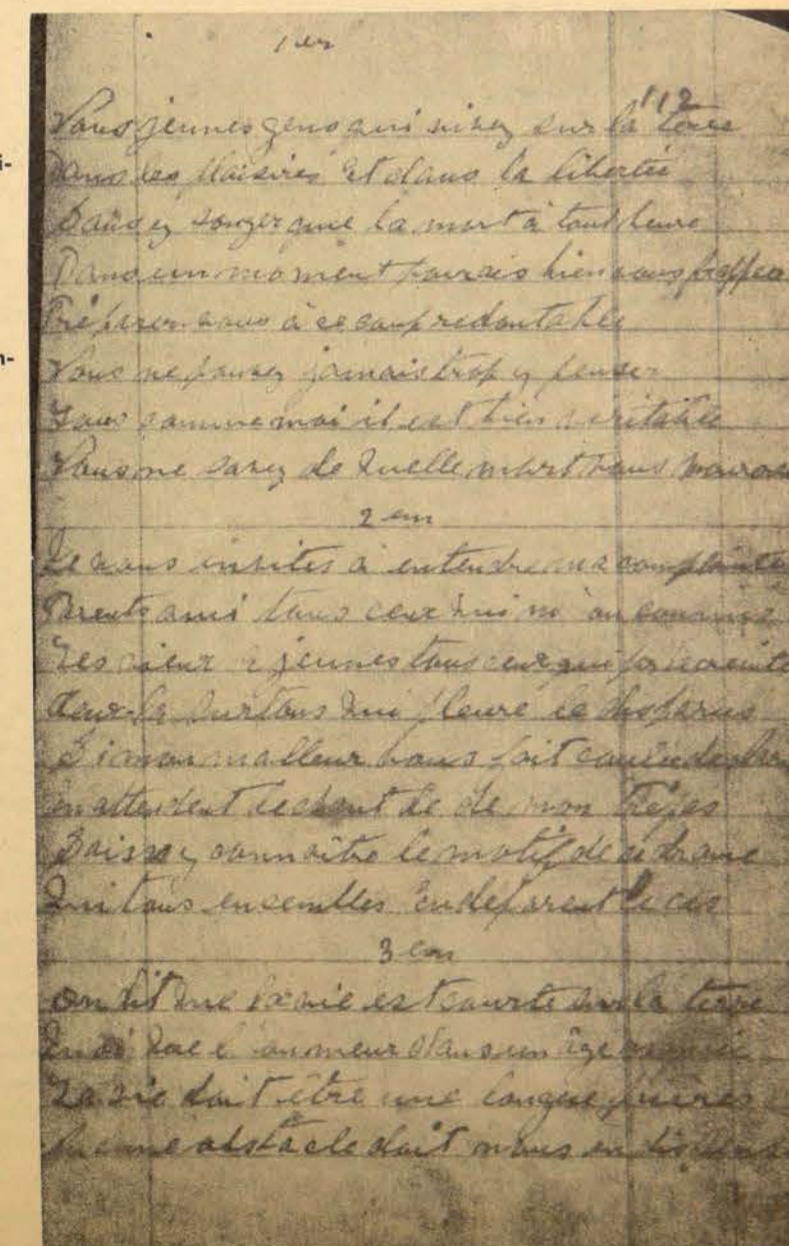 1 er
112
Vous jeunes gens qui vivez sur la terre
Dans les plaisires et dans la libertée
Sans y songer que la mort à tout heure
Dans un moment pourais bien vous frapper
Préparer vous à ce coup redoutable
Vous ne pouvez jamais trop y penser
Tous comme moi il est bien véritable
Vous ne savez de quelle mort vous
2 em
Je vous invites à entendre ma complainte
Parents ami tous ceux qui m'on connus
Les vieux jeunes tous ceux qui
Ceux-la surtous qui pleure ce disparus
Si mon malleur vous fait
en attendent de de mon
Laissez connaître le motif de ce drame
Qui tous ensembles
3 em
On dit que la vie est courte sur la terre
que l'on meur dans un âge
La vie doit être une longue prières
obstacle doit nous en
i-
n-